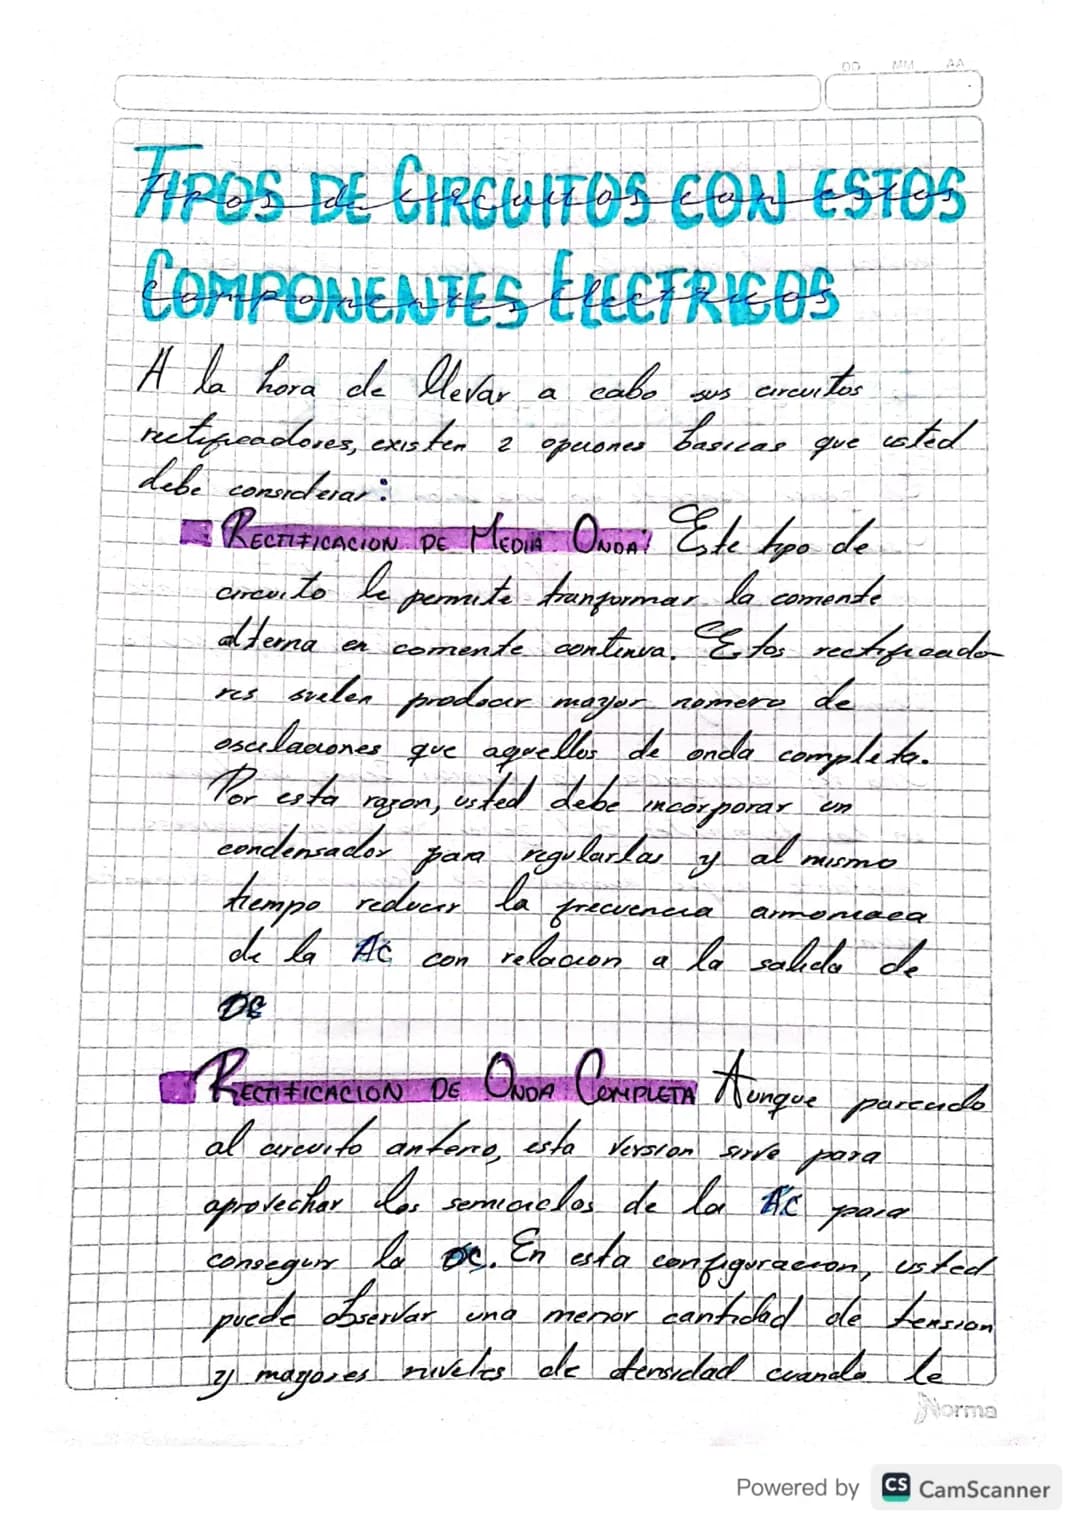 DD MM AA
TIPOS DE CIRCUITOS CON ESTOS
COMPONENTES ELECTRICOS
A la hora de llevar a cabo sus circuitos
rectificadores, existen 2 opciones basicas que usted
debe considerar:
RECTIFICACION DE MEDIA ONDA: Este tipo de
circuito le permite tranformar la corriente
alterna en corriente continua. Estos rectificado
res suelen producir mayor numero de
oscilaciones que aquellos de onda completa.
Por esta razon, usted debe incorporar un
condensador para regularlas y al mismo
tiempo reducir la frecuencia armonica
de la AC con relacion a la salida de
DC
RECTIFICACION DE ONDA COMPLETA Aunque parecido
al circuito anterio, esta version sirve para
aprovechar los semiciclos de la AC para
conseguir la DC. En esta configuracion, usted
puede observar una menor cantidad de tension
y mayores niveles de densidad cuando le
Norma
Powered by CS CamScanner